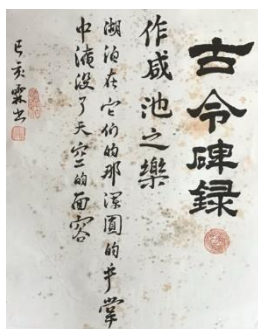 古今碑録
作咸池之樂
湖泊在它们的那深圆的手掌
中淹没了天空的面容
己亥霖书